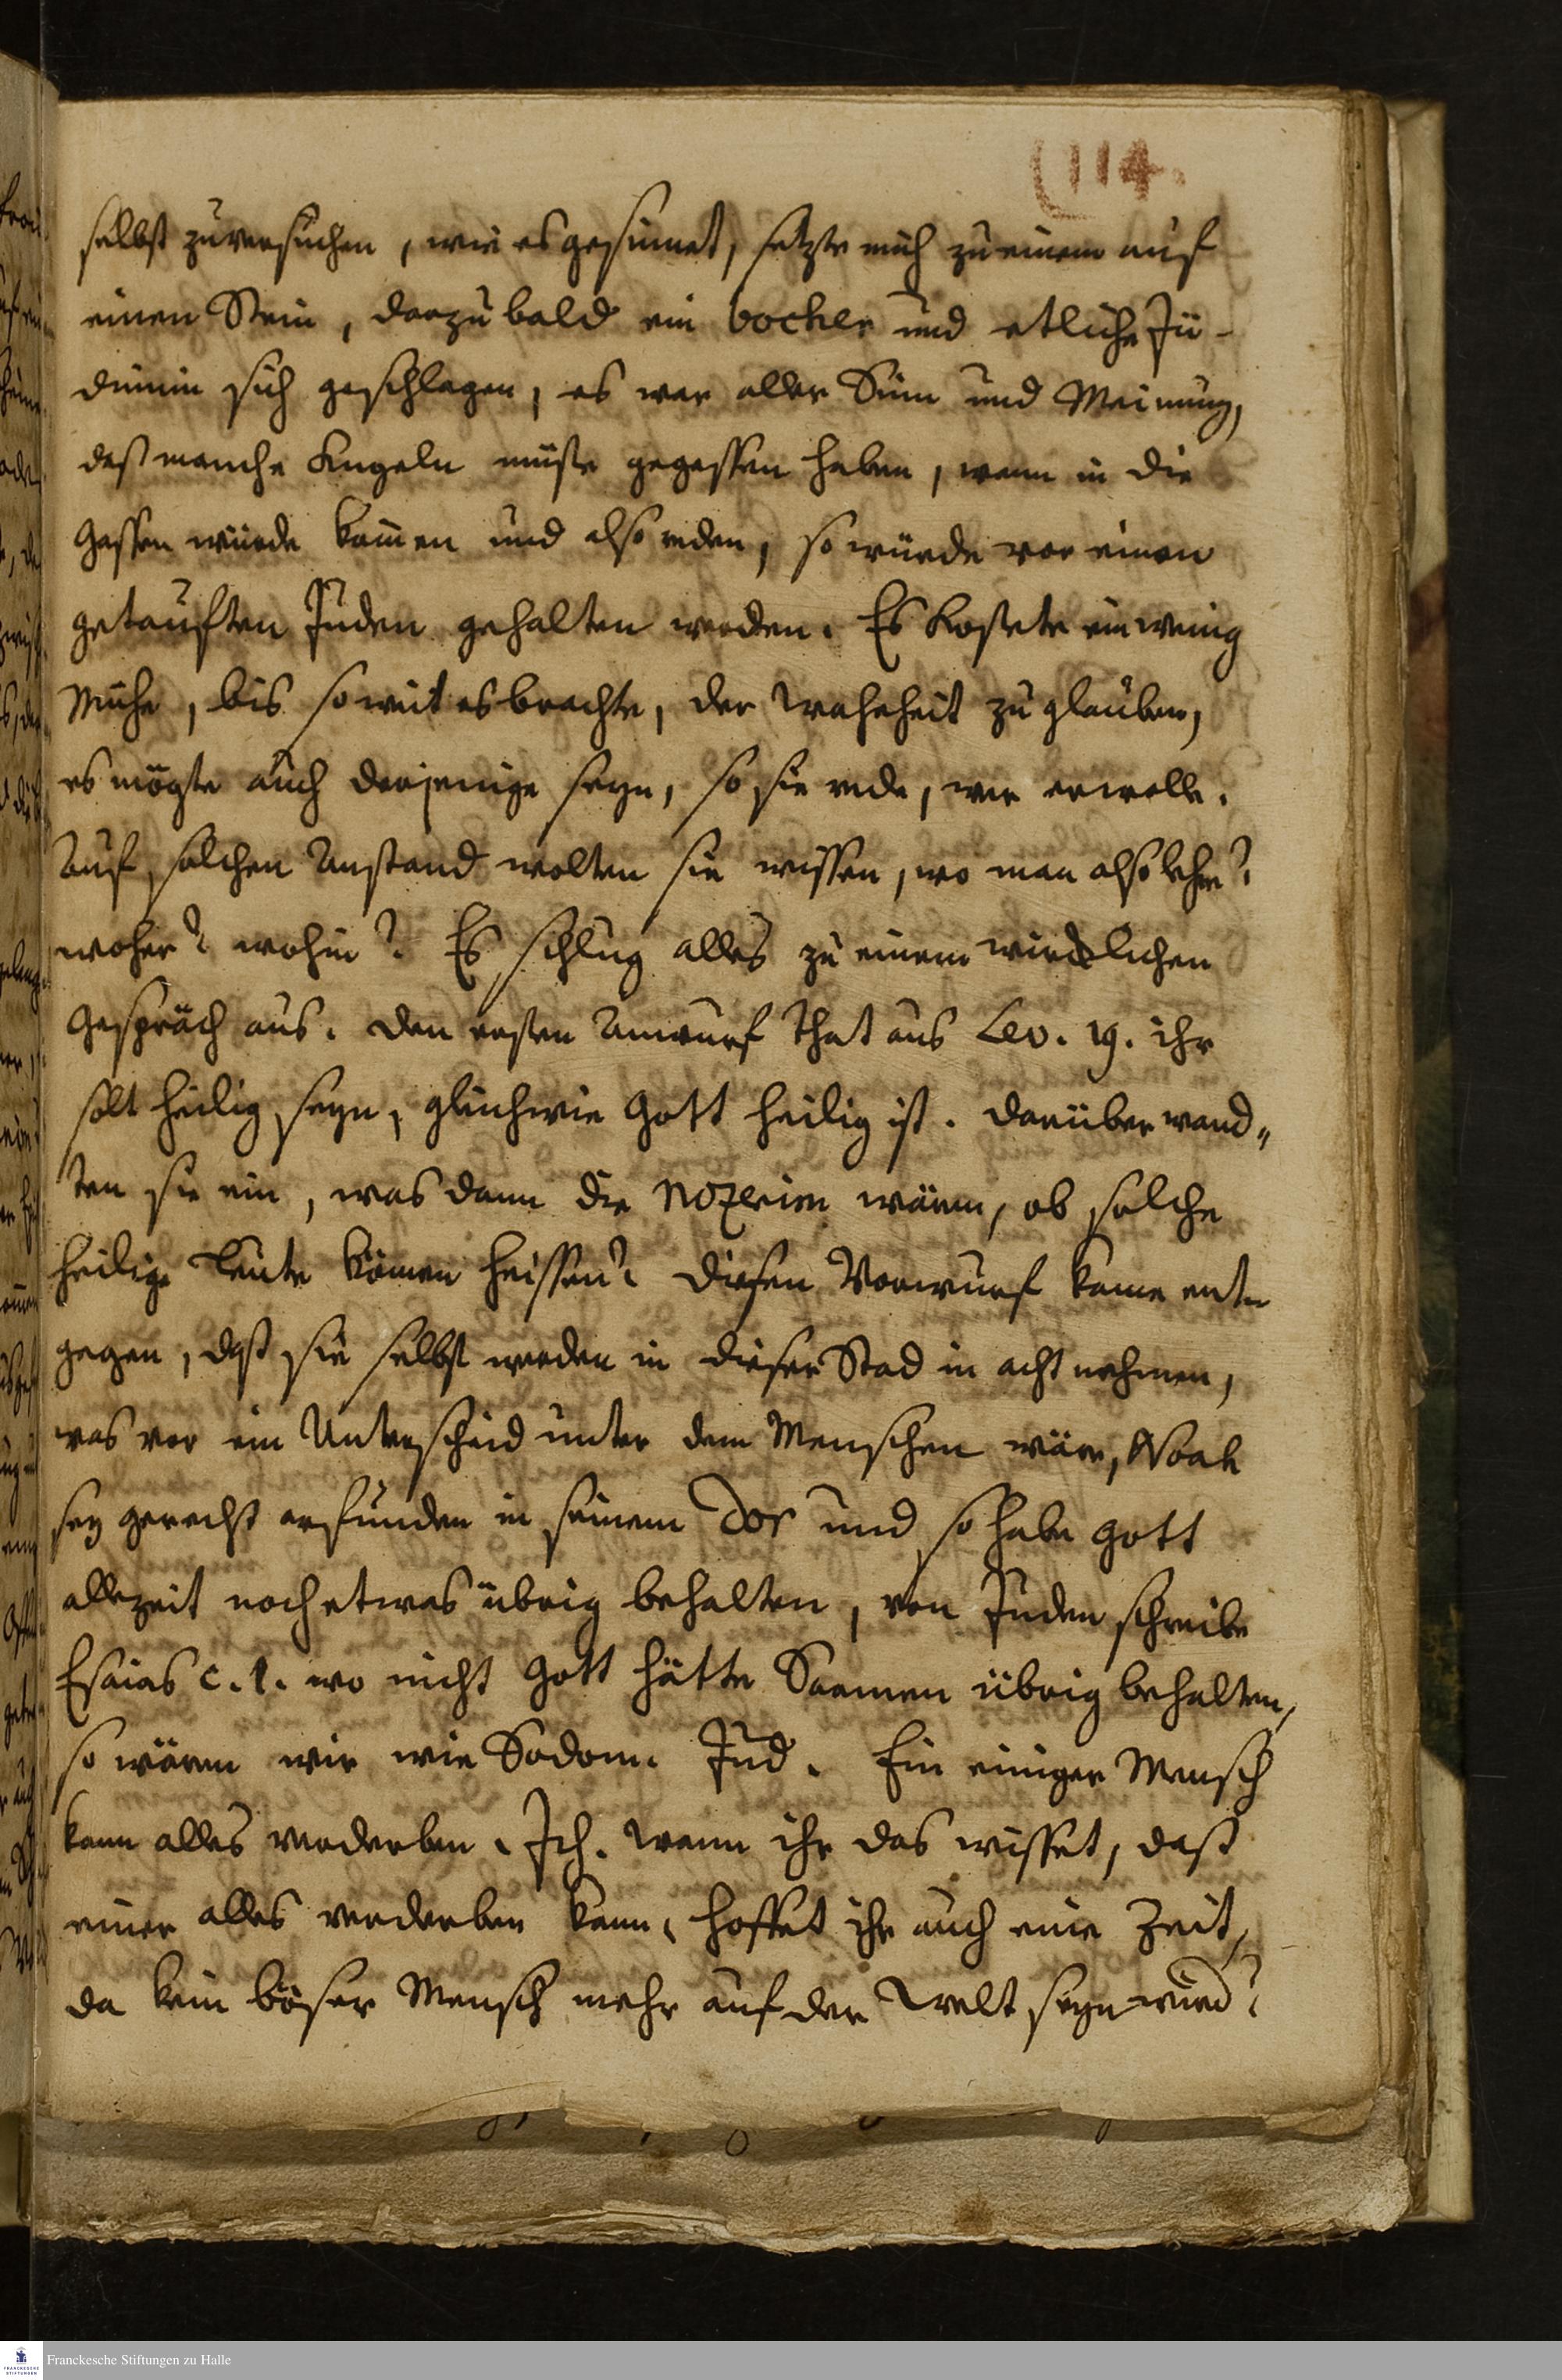 (114.
selbst zuversuchen, wie es gesinnet, setzte mich zu einem auf
einen Stein, darzu bald ein bocher und etliche Jü-
dinnin sich geschlagen, es war aller Sinn und Meinung,
daß manche Kugeln müste gegessen haben, wann in die
Gassen würde kom̄en und also reden, so würde vor einen
getauften Juden gehalten werden. Es kostete ein wenig
Mühe, bis so weit es brachte, der Wahrheit zu glauben,
es mögte auch derjenige seyn, so sie rede, wer er wolle.
Auf solchen Anstand wolten sie wissen, wo man also lehre?
woher? wohin? Es schlug alles zu einem wircklichen
Gespräch aus. Den ersten Anwurf that aus Lev. 19. ihr
solt heilig seyn, gleichwie Gott heilig ist. Darüber wand„
ten sie ein, was dann die Nozerim wären, ob solche
heilige Leute können heissen? Diesen Vorwurf kame ent-
gegen, daß sie selbst werden in dieser Stad in acht nehmen,
was vor ein Unterscheid unter den Menschen wäre, Noah
sey gerecht erfunden in seinem Dor und so habe Gott
allezeit noch etwas übrig behalten, von Juden schreibe
Esaias c. 1. wo nicht Gott hätte Saamen übrig behalten,
so wären wir wie Sodom. Jud. Ein einiger Mensch
kann alles verderben. Ich. Wann ihr das wisset, daß
einer alles verderben kann, hoffet ihr auch eine Zeit,
da kein böser Mensch mehr auf der Welt seyn wird?
Franckesche Stiftungen zu Halle